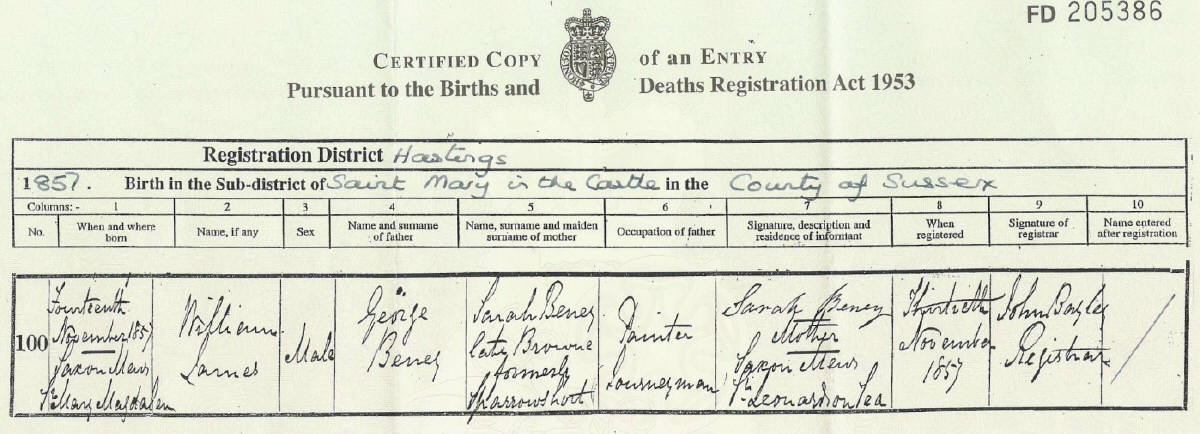 FD 205386
CERTIFIED COPY of an ENTRY
Pursuant to the Births and Deaths Registration Act 1953
Registration District Hastings
1857. Birth in the Sub-district of Saint Mary in the Castle in the County of Sussex
Columns:- 1 2 3 4 5 6 7 8 9 10
No. When and where born Name, if any Sex Name and surname of father Name, surname and maiden surname of mother Occupation of father Signature, description and residence of informant When registered Signature of registrar Name entered after registration
100
Fourteenth
November 1857
Saxon Mews
St Mary Magdalen
William
James
Male
George
Beney
Sarah Beney
late Browne
formerly
Sparrowshott
Painter
Journeyman
Sarah Beney
Mother
Saxon Mews
St Leonards on Sea
Thirtieth
November
1857
John Bayley
Registrar